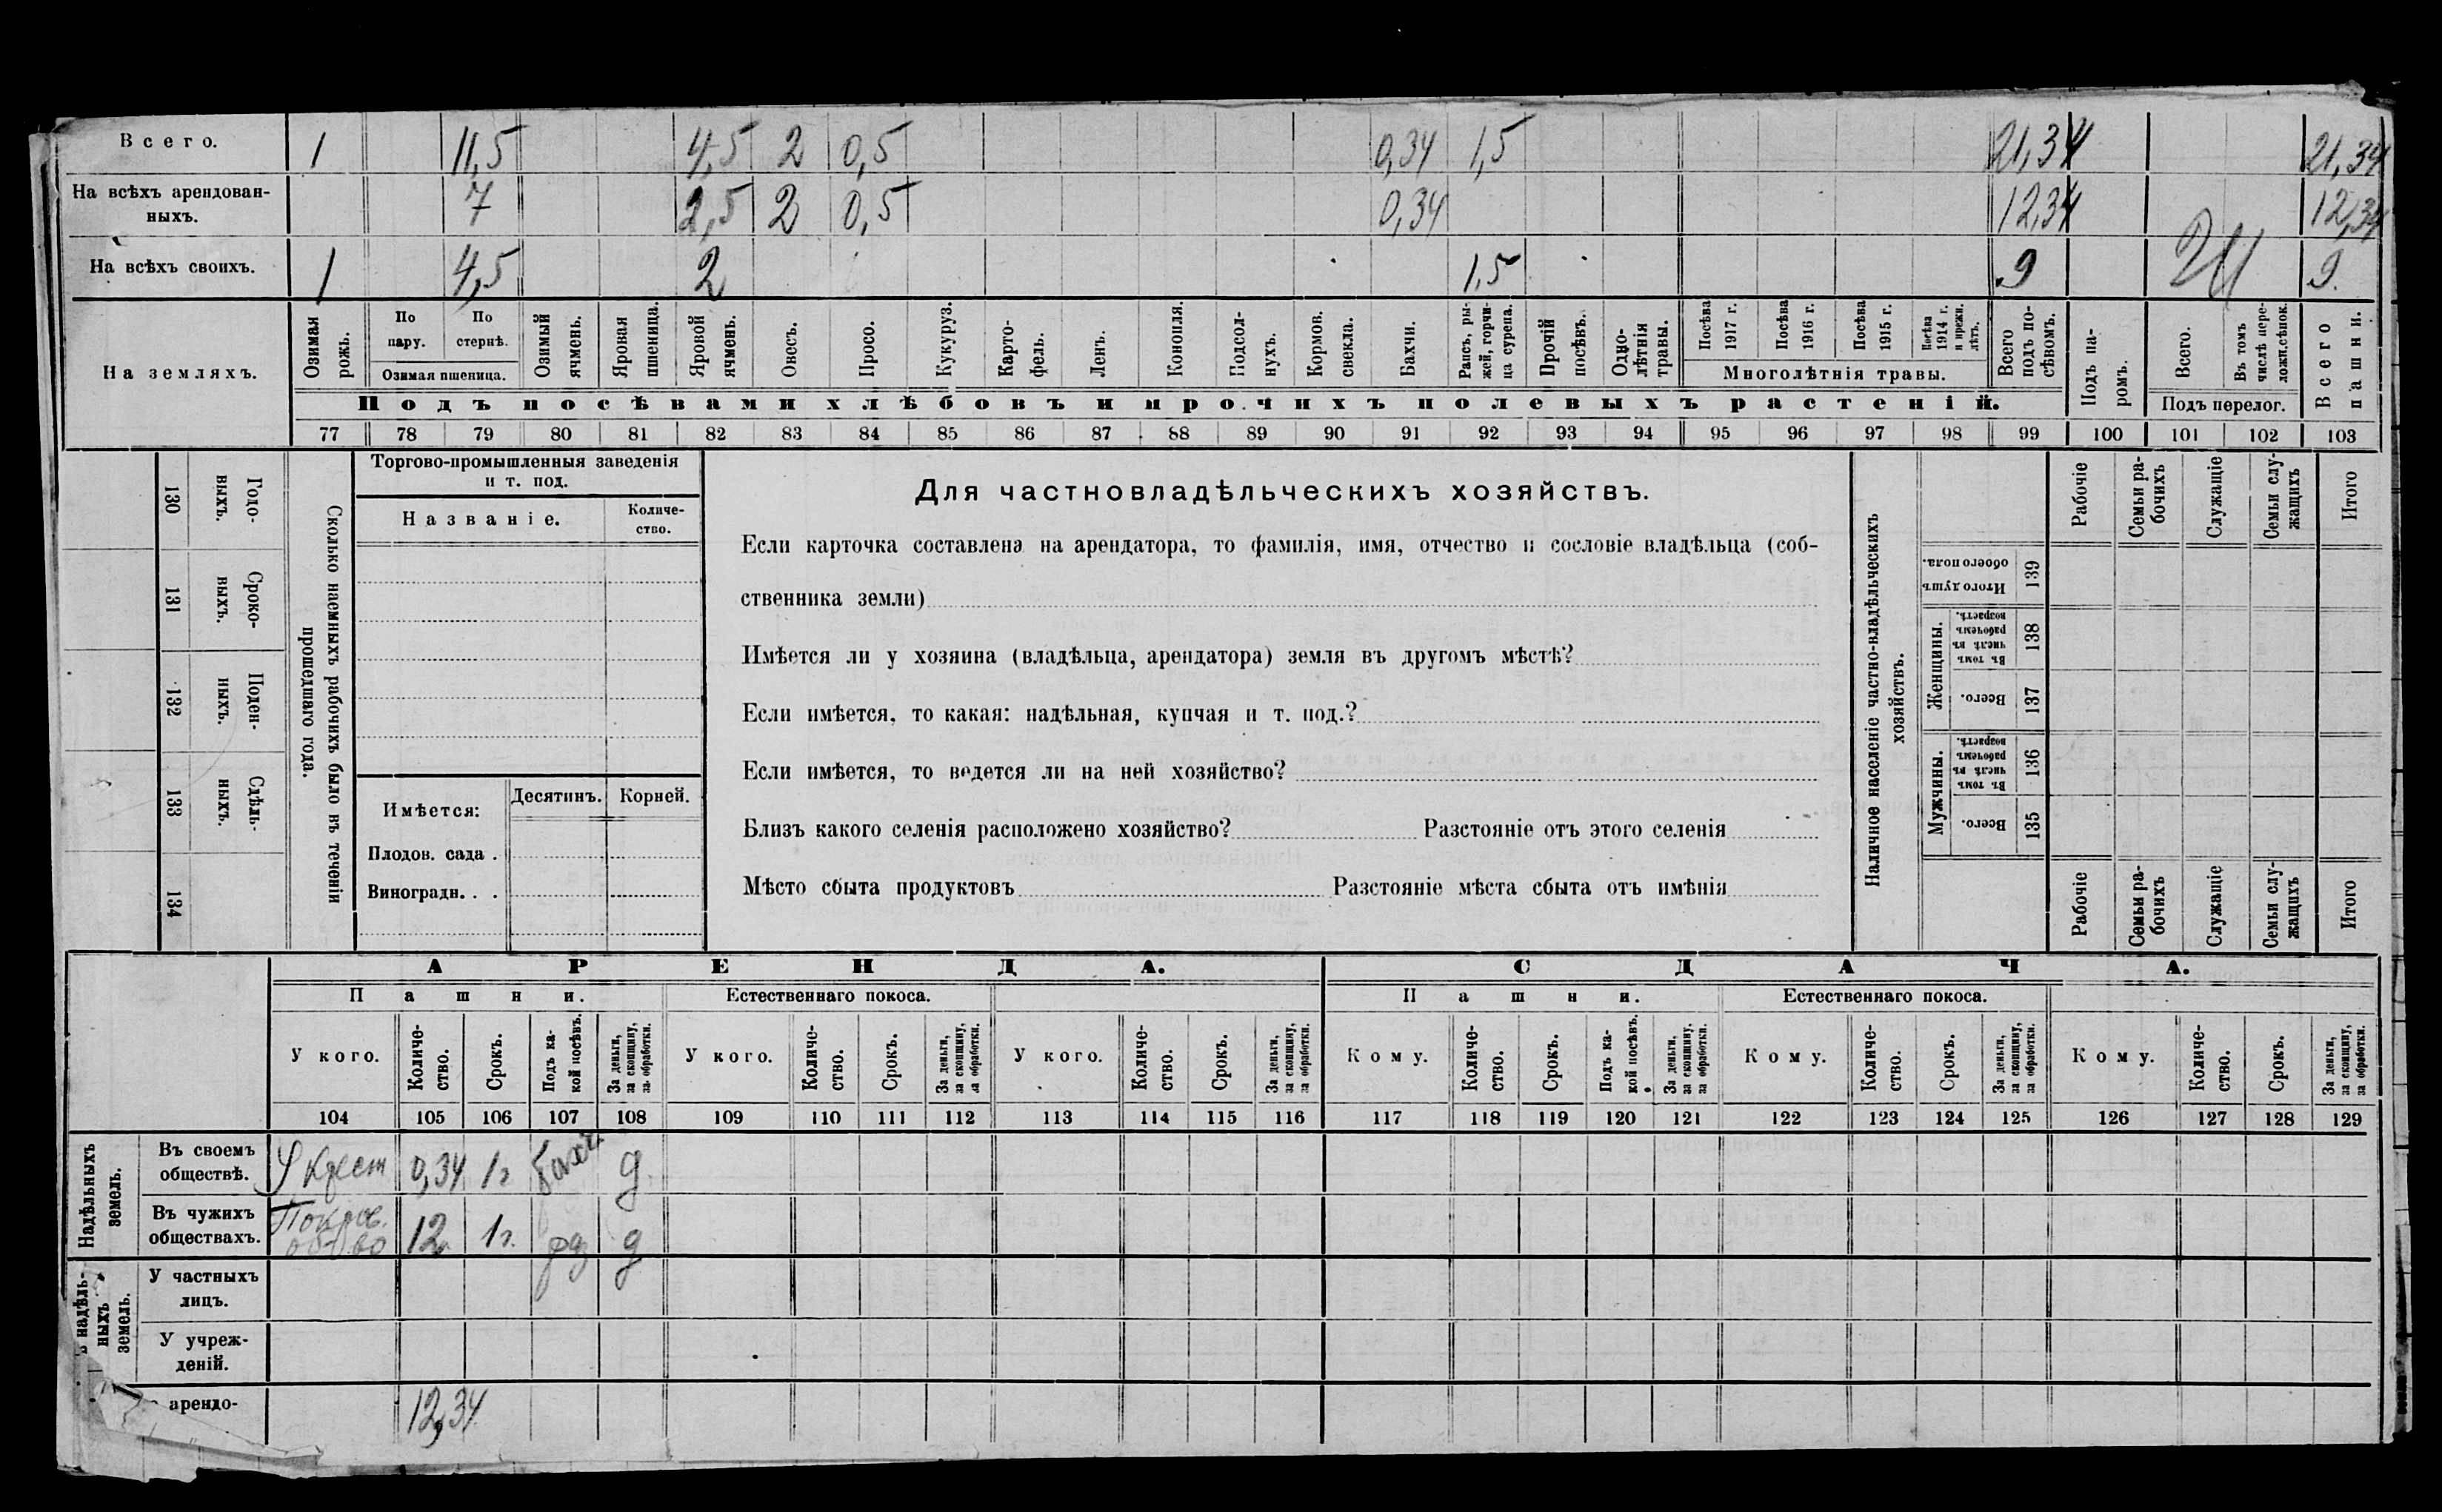 Всего. 1 11,5 4,5 2 0,5 0,34 1,5 21,34 21,34
На всѣхъ арендован-
ныхъ. 7 2,5 2 0,5 0,34 12,34 12,34
На всѣхъ своихъ. 1 4,5 2 1,5 9 9.
На земляхъ.
Озимая рожь.
По пару.
По стернѣ.
Озимая пшеница.
Озимый ячмень.
Яровая пшеница.
Яровой ячмень.
Овесъ.
Просо.
Кукуруз.
Карто-
фель.
Ленъ.
Конопля.
Подсол-
нухъ.
Кормов.
свекла.
Бахчи.
Рапсъ, ры-
жей, горчи-
ца сурепа.
Прочій посѣвъ.
Одно-
лѣтнія
травы.
Посѣва 1917 г.
Посѣва 1916 г.
Посѣва 1915 г.
Посѣва 1914 г. и прежн. лѣтъ.
Многолѣтнія травы.
Всего подъ по-
сѣвомъ.
Подъ па-
ромъ.
Всего.
Въ томъ числѣ пере-
ложн.сѣнок.
Подъ перелог.
Всего пашни.
Подъ посѣвами хлѣбовъ и прочихъ полевыхъ растеній.
77 78 79 80 81 82 83 84 85 86 87 88 89 90 91 92 93 94 95 96 97 98 99 100 101 102 103
Сколько наемныхъ рабочихъ было въ теченіи
прошедшаго года.
Годо-
выхъ. 130
Сроко-
выхъ. 131
Поден-
ныхъ. 132
Сдѣль-
ныхъ. 133
134
Торгово-промышленныя заведенія
и т. под.
Названіе. Количе-
ство.
Имѣется: Десятинъ. Корней.
Плодов. сада .
Виноградн. . .
Для частновладѣльческихъ хозяйствъ.
Если карточка составлена на арендатора, то фамилія, имя, отчество и сословіе владѣльца (соб-
ственника земли)
Имѣется ли у хозяина (владѣльца, арендатора) земля въ другомъ мѣстѣ?
Если имѣется, то какая: надѣльная, купчая и т. под.?
Если имѣется, то ведется ли на ней хозяйство?
Близъ какого селенія расположено хозяйство? Разстояніе отъ этого селенія
Мѣсто сбыта продуктовъ Разстояніе мѣста сбыта отъ имѣнія
Наличное населеніе частно-владѣльческихъ
хозяйствъ.
Рабочіе
Семьи ра-
бочихъ
Служащіе
Семьи слу-
жащихъ
Итого
Итого душъ
обоего пола. 139
Женщины.
Въ томъ числѣ въ рабочемъ возрастѣ. 138
Всего. 137
Мужчины.
Въ томъ числѣ въ рабочемъ возрастѣ. 136
Всего. 135
Рабочіе
Семьи ра-
бочихъ
Служащіе
Семьи слу-
жащихъ
Итого
АРЕНДА. СДАЧА.
Пашни. Естественнаго покоса. Пашни. Естественнаго покоса.
У кого.
Количе-
ство.
Срокъ.
Подъ ка-
кой посѣвъ.
За деньги,
за скопщину,
за обработки.
У кого.
Количе-
ство.
Срокъ.
За деньги,
за скопщину,
за обработки.
У кого.
Количе-
ство.
Срокъ.
За деньги,
за скопщину,
за обработки.
Кому.
Количе-
ство.
Срокъ.
Подъ ка-
кой посѣвъ.
За деньги,
за скопщину,
за обработки.
Кому.
Количе-
ство.
Срокъ.
За деньги,
за скопщину,
за обработки.
Кому.
Количе-
ство.
Срокъ.
За деньги,
за скопщину,
за обработки.
104 105 106 107 108 109 110 111 112 113 114 115 116 117 118 119 120 121 122 123 124 125 126 127 128 129
Надѣльныхъ
земель.
Въ своемъ
обществѣ. У крест 0,34 1 г д.
Въ чужихъ
обществахъ. Покров. 12 1 г. д
надѣль-
ныхъ
земель.
У частныхъ
лицъ.
У учреж-
деній.
арендо- 12,34